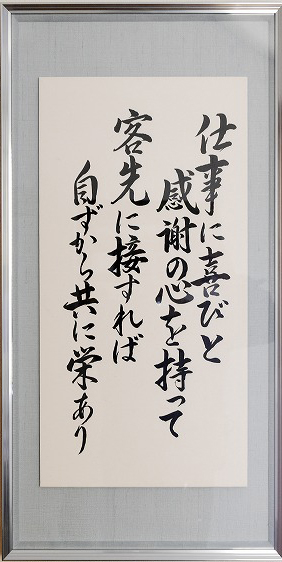 仕事に喜びと
感謝の心を持って
客先に接すれば
自ずから共に栄あり